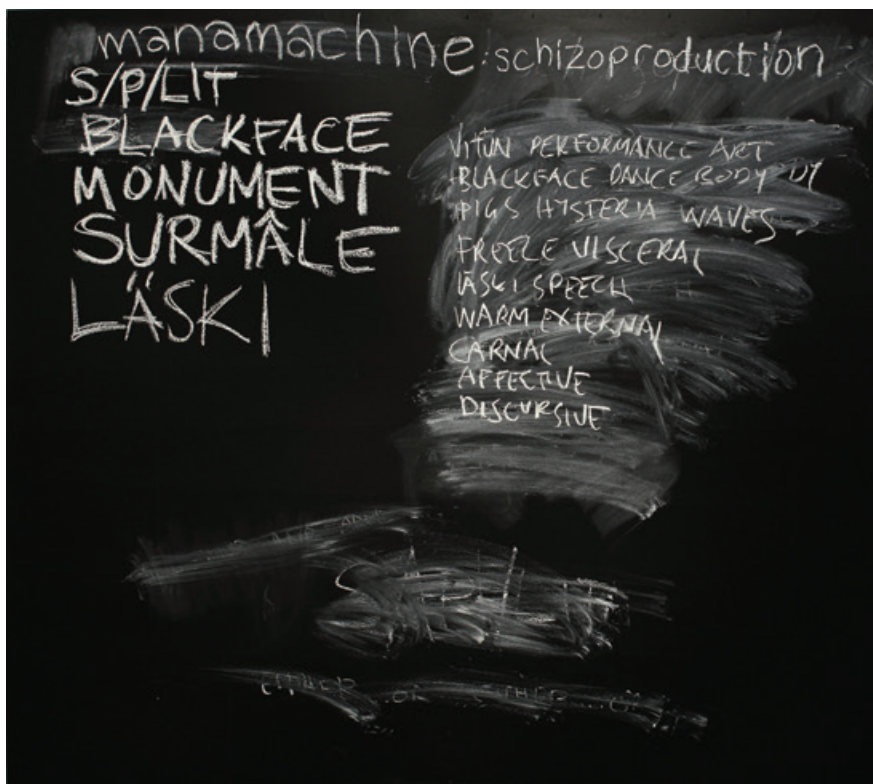 manamachine:schizoproduction
S/P/LIT
BLACKFACE
MONUMENT
SURMÂLE
LÄSKI
VITUN PERFORMANCE ART
BLACKFACE DANCE BODY
PIGS HYSTERIA WAVES
FREEZE VISCERAL
LÄSKI SPEECH
WARM EXTERNAL
CARNAL
AFFECTIVE
DISCURSIVE
EITHER OR